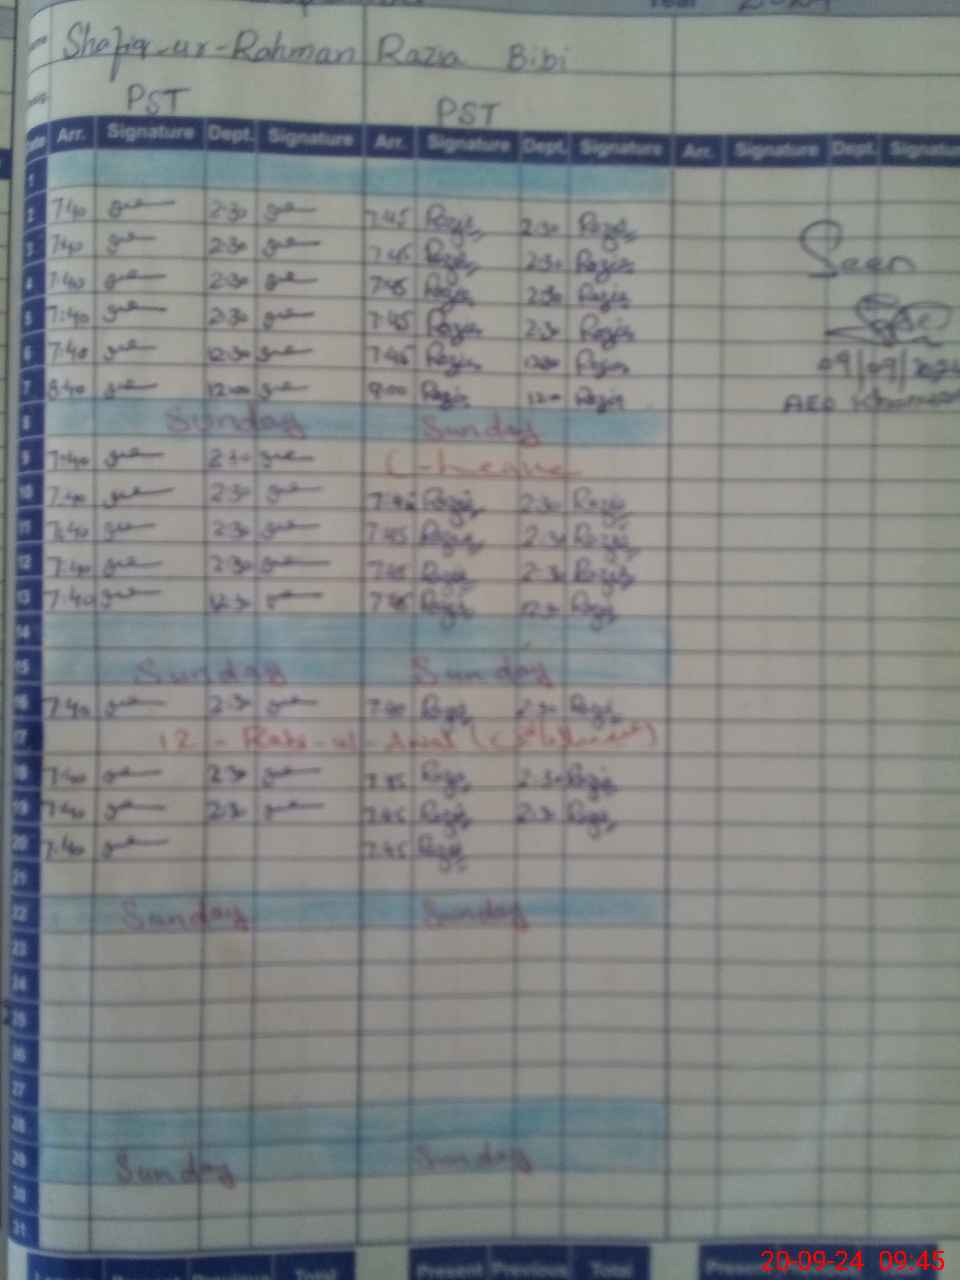 Year
Shafiq-ur-Rahman Razia Bibi
PST PST
Arr. Signature Dept. Signature Arr. Signature Dept. Signature Arr. Signature Dept. Signature
1
2 7:40 2:30 7:45 Razia 2:30 Razia
3 7:40 2:30 7:45 Razia 2:30 Razia
Seen
4 7:40 2:30 7:45 Razia 2:30 Razia
5 7:40 2:30 7:45 Razia 2:30 Razia
6 7:40 12:30 7:45 Razia 12:30 Razia
09/09/2024
7 8:40 12:00 9:00 Razia 12:00 Razia
AEO
8 Sunday Sunday
9 7:40 2:30 C-Leave
10 7:40 2:30 7:45 Razia 2:30 Razia
11 7:40 2:30 7:45 Razia 2:30 Razia
12 7:40 2:30 7:45 Razia 2:30 Razia
13 7:40 12:30 7:45 Razia 12:30 Razia
14
15 Sunday Sunday
16 7:40 2:30 7:40 Razia 2:30 Razia
17 12-Rabi-ul-Awal
18 7:40 2:30 7:45 Razia 2:30 Razia
19 7:40 2:30 7:45 Razia 2:30 Razia
20 7:40 7:45 Razia
21
22 Sunday Sunday
23
24
25
26
27
28
29 Sunday Sunday
30
31
Total Present Previous Total Present
20-09-24 09:45